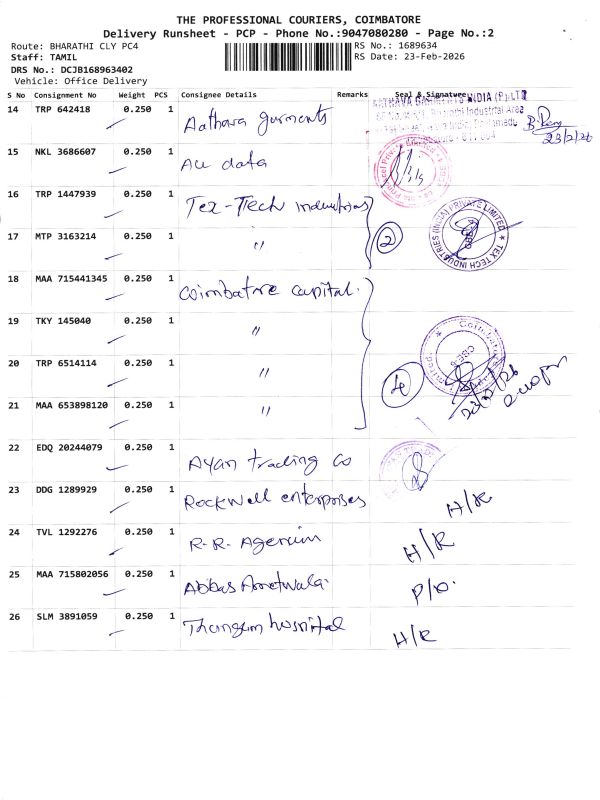 THE PROFESSIONAL COURIERS, COIMBATORE
Delivery Runsheet - PCP - Phone No.:9047080280 - Page No.:2
Route: BHARATHI CLY PC4
RS No.: 1689634
Staff: TAMIL
RS Date: 23-Feb-2026
DRS No.: DCJB168963402
Vehicle: Office Delivery
S No Consignment No Weight PCS Consignee Details Remarks Seal & Signature
14 TRP 642418 0.250 1 Aathava garments
INDIA (P) LTD
Industrial Area
23/2/26
15 NKL 3686607 0.250 1 Au data
16 TRP 1447939 0.250 1 Tex-Tech industries
17 MTP 3163214 0.250 1 〃 2
TEX TECH INDUSTRIES (INDIA) PRIVATE LIMITED
18 MAA 715441345 0.250 1 Coimbatore capital.
19 TKY 145040 0.250 1 〃
Coimbatore
20 TRP 6514114 0.250 1 〃 4
21 MAA 653898120 0.250 1 〃
22 EDQ 20244079 0.250 1 Ayan trading co
23 DDG 1289929 0.250 1 Rockwell enterprises H/R
24 TVL 1292276 0.250 1 R.R. Agencies H/R
25 MAA 715802056 0.250 1 Abbas P/O.
26 SLM 3891059 0.250 1 Thangam hospital H/R